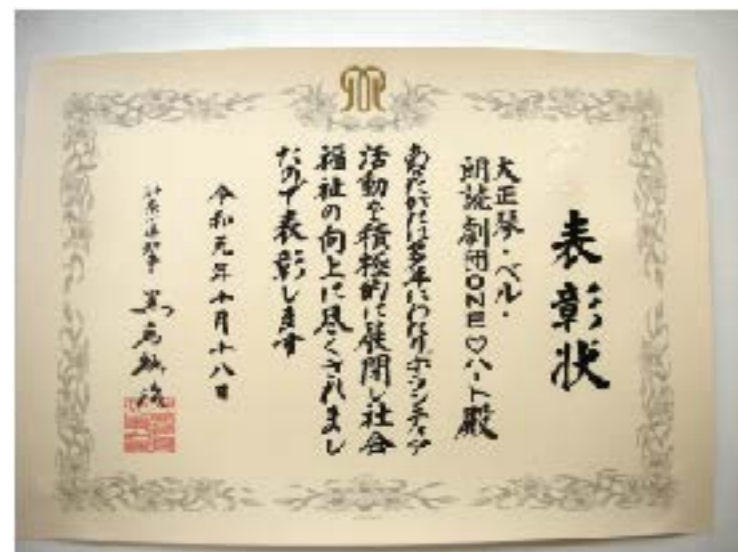 表彰状
大正琴・ベル・
朗読劇団ONE♡ハート殿
あなたがたは多年にわたりボランティア
活動を積極的に展開し社会
福祉の向上に尽くされまし
たので表彰します
令和元年十月十八日
神奈川県知事 黒岩祐治